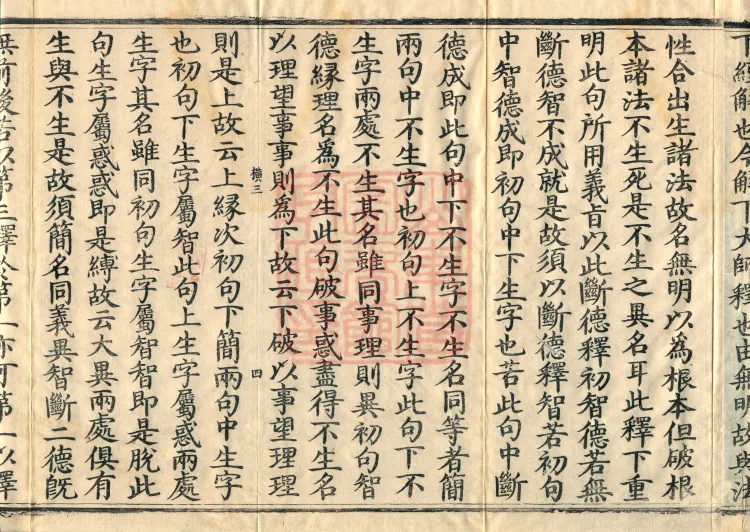 下經解也今解下大師釋也由無明故與法
性合出生諸法故名無明以為根本但破根
本諸法不生死是不生之異名耳此釋下重
明此句所用義旨以此斷德釋初智德若無
斷德智不成就是故須以斷德釋智若初句
中智德成即初句中下生字也若此句中斷
德成即此句中下不生字不生名同等者簡
兩句中不生字也初句上不生字此句下不
生字兩處不生其名雖同事理則異初句智
德緣理名為不生此句破事惑盡得不生名
以理望事事則為下故云下破以事望理理
橫三
四
則是上故云上緣次初句下簡兩句中生字
也初句下生字屬智此句上生字屬惑兩處
生字其名雖同初句生字屬智智即是脫此
句生字屬惑惑即是縛故云大異兩處俱有
生與不生是故須簡名同義異智斷二德既
無前後若以第三釋於第一亦可第一以釋